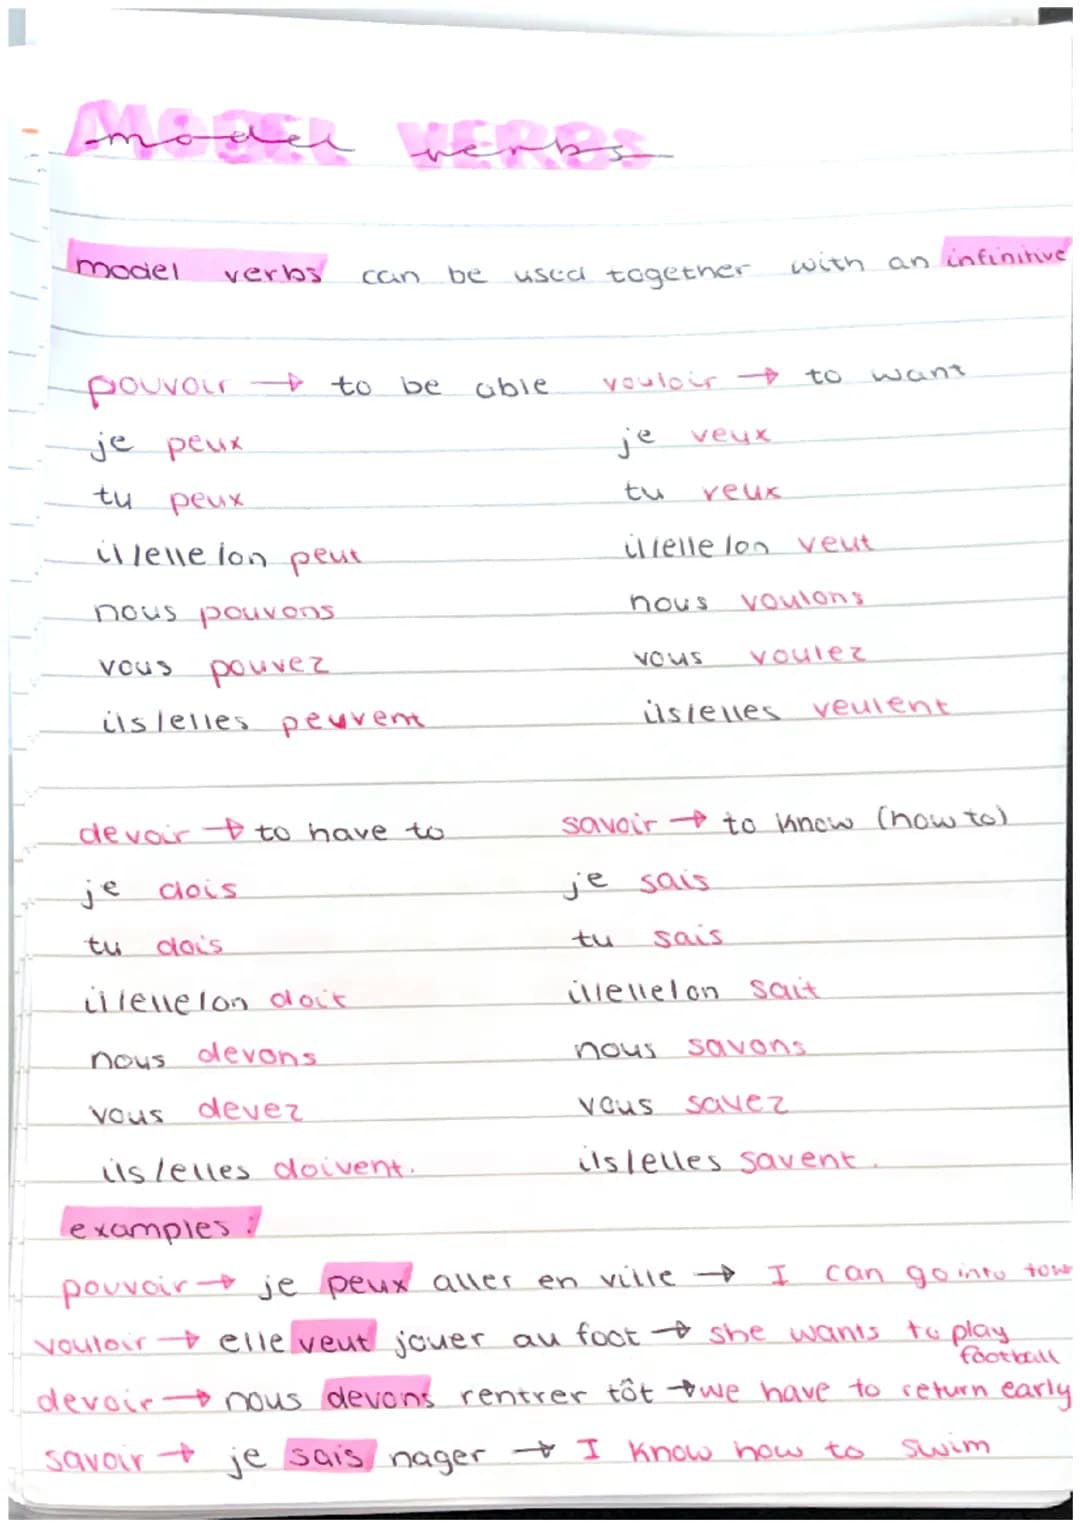 MODEL VERBS
model verbs
model verbs can be used together with an infinitive
pouvoir → to be able
je peux
tu peux
il/elle/on peut
nous pouvons
vous pouvez
ils/elles peuvent
vouloir → to want
je veux
tu veux
il/elle/on veut
nous voulons
vous voulez
ils/elles veulent
devoir → to have to
je dois
tu dois
il/elle/on doit
nous devons
vous devez
ils/elles doivent.
savoir → to know (how to)
je sais
tu sais
il/elle/on sait
nous savons
vous savez
ils/elles savent.
examples:
pouvoir → je peux aller en ville → I can go into town
vouloir → elle veut jouer au foot → she wants to play
football
devoir → nous devons rentrer tôt → we have to return early
savoir → je sais nager → I know how to swim